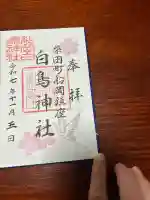 奉拝
柴田町船岡鎮座
白鳥神社
令和七年十一月五日